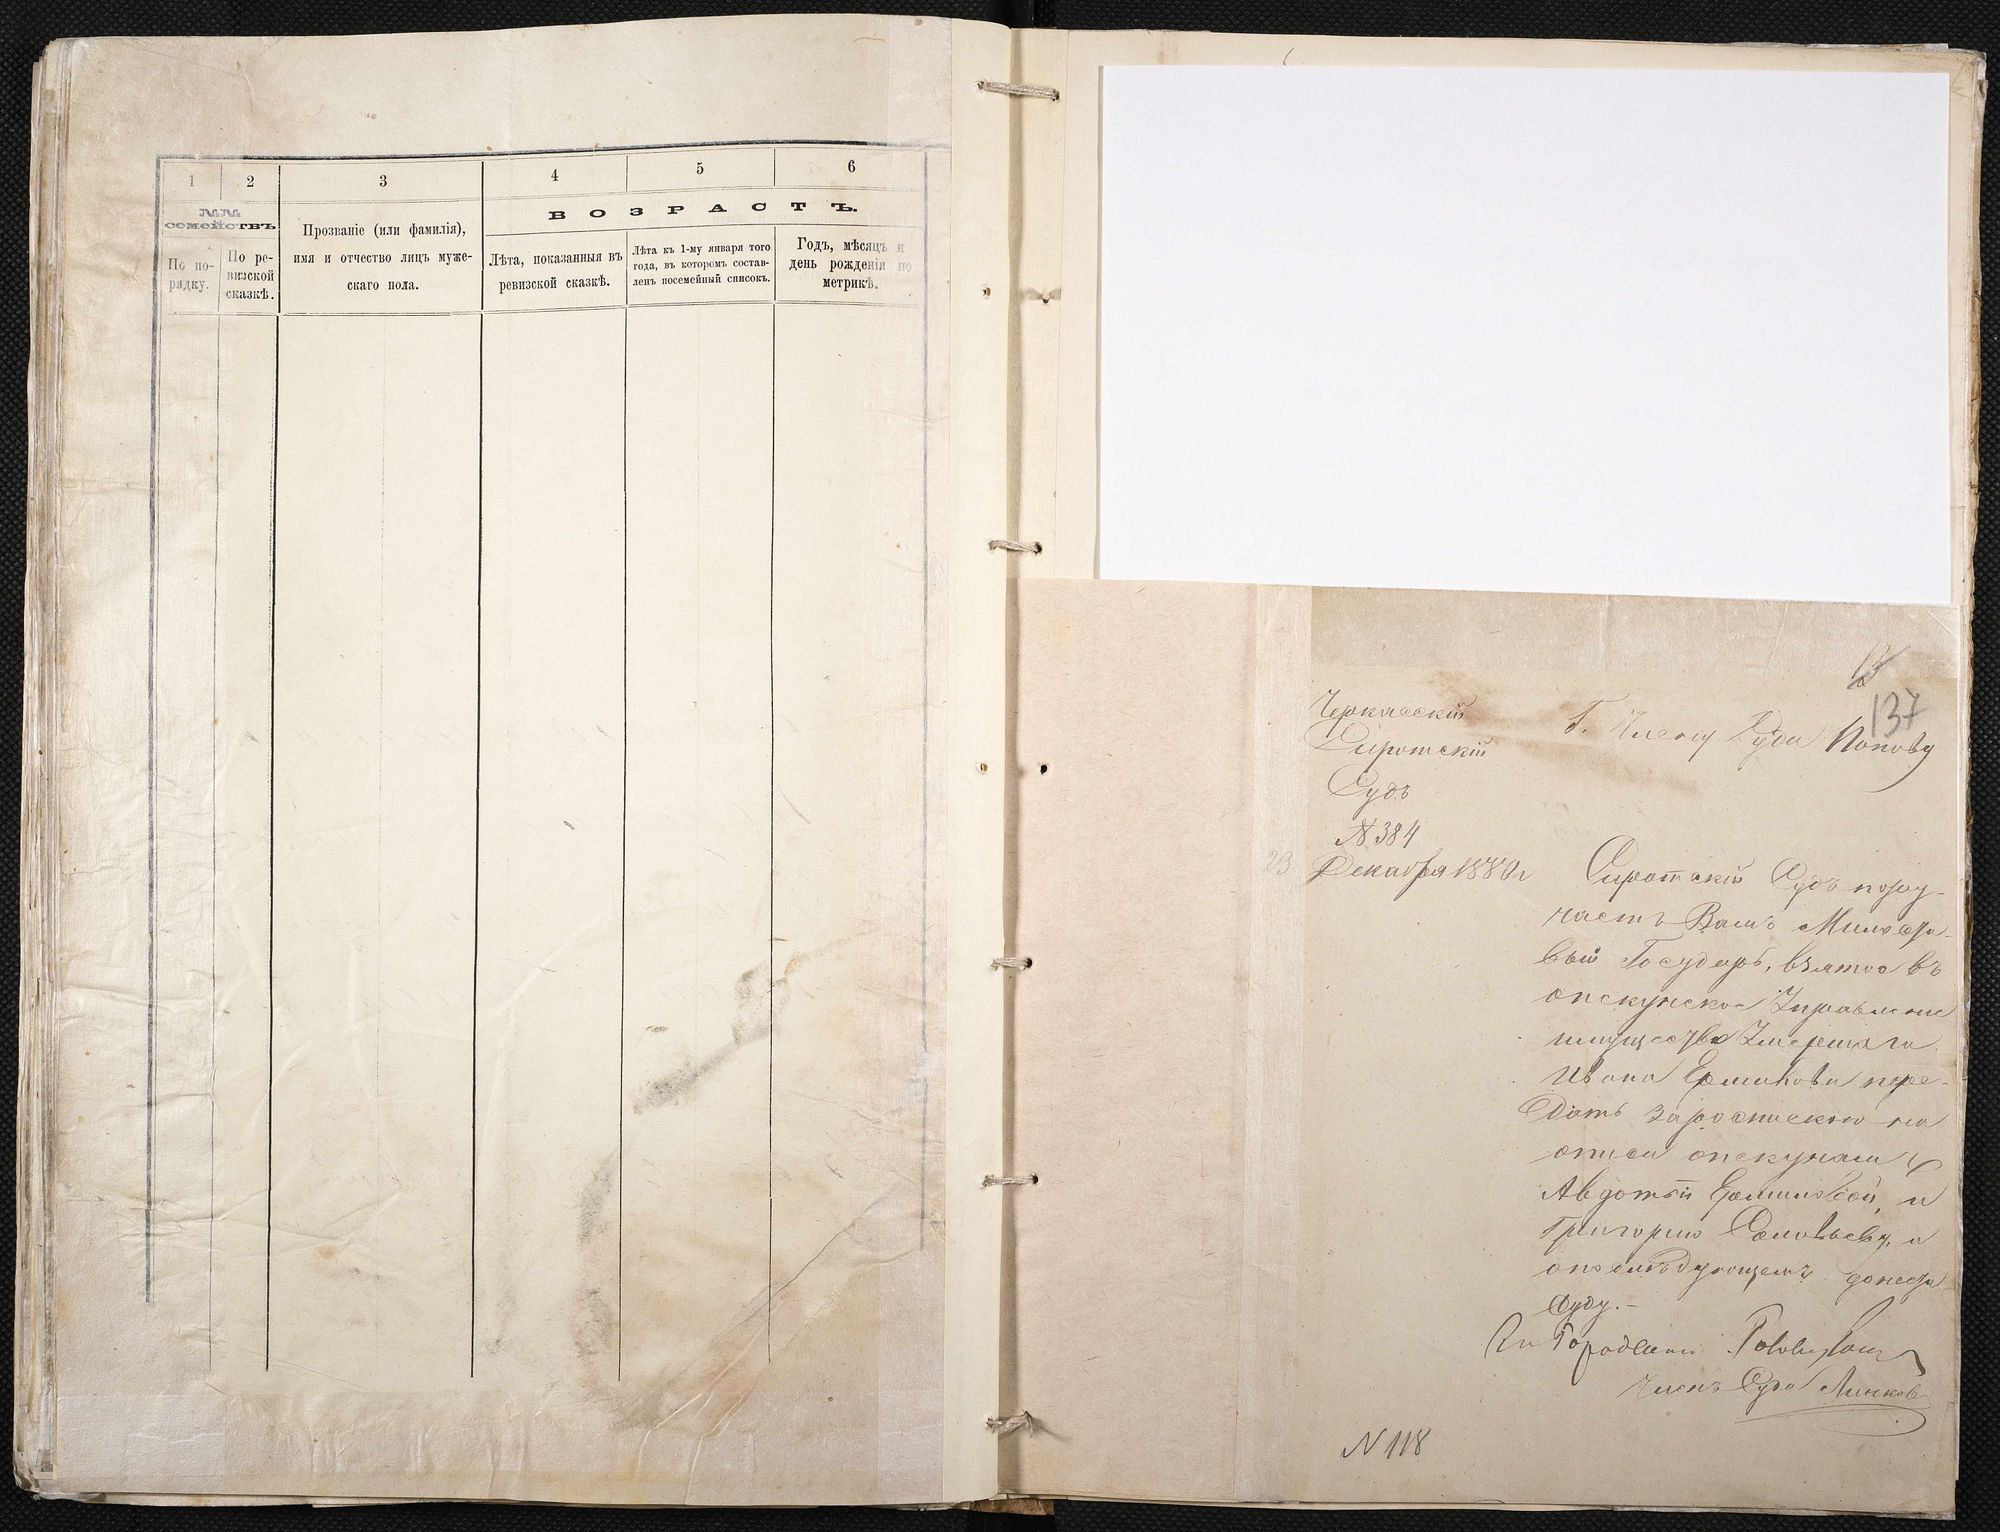 1
2
3
4
5
6
№№
семействъ
По по-
рядку.
По ре-
визской
сказкѣ.
Прозваніе (или фамилія),
имя и отчество лицъ муже-
скаго пола.
ВОЗРАСТЪ.
Лѣта, показанныя въ
ревизской сказкѣ.
Лѣта къ 1-му января того
года, въ которомъ состав-
ленъ посемейный списокъ.
Годъ, мѣсяцъ и
день рожденія по
метрикѣ.
137
Черкасскій
Сиротскій
Судъ
№ 384
23 Декабря 1880 г
Г. Члену Суда Попову
Сиротскій Судъ пору-
чаетъ Вамъ Милости-
вый Государь, взятое въ
опекунское Управленіе
имущество Умершаго
Ивана Ермакова пере-
дать за роспискою на
описи опекунамъ
Авдотьи Ермаковой, и
Григорию Соловьеву, и
опослѣдующемъ донести
Суду.-
Городской Голова
Членъ Суда Линковъ
N 118